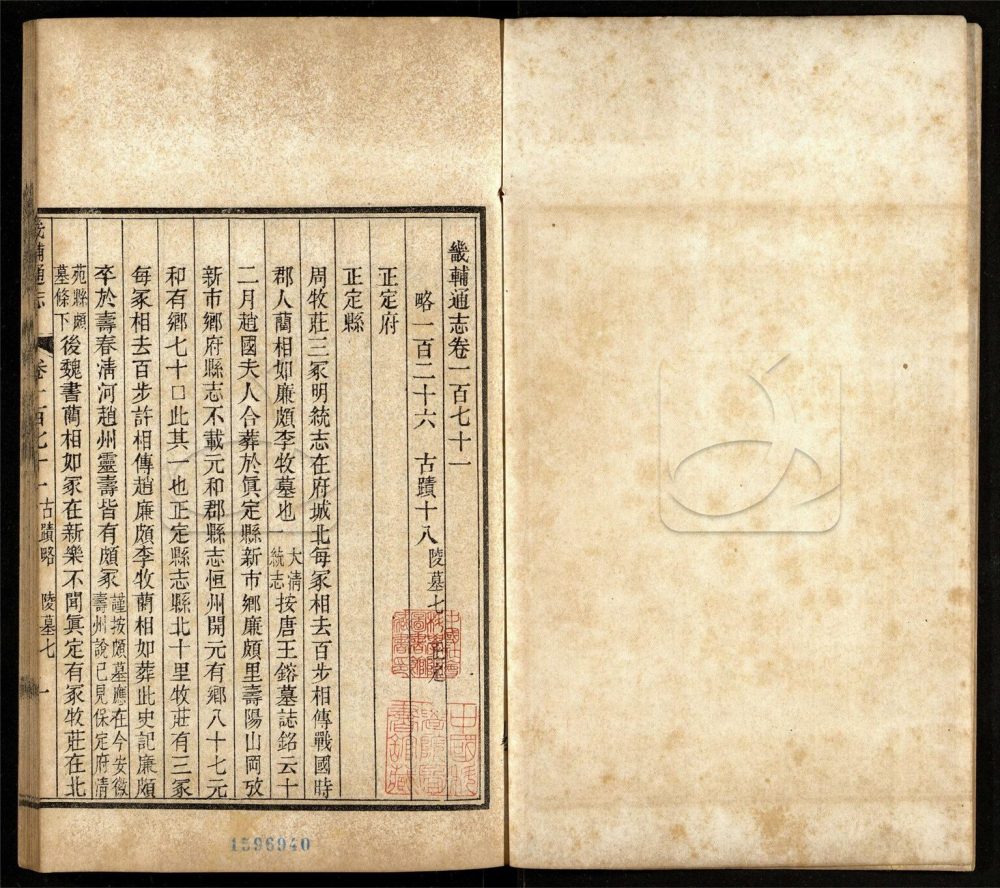 畿輔通志卷一百七十一
略一百二十六 古蹟十八 陵墓七
正定府
正定縣
周牧莊三冢明統志在府城北每冢相去百步相傳戰國時
郡人藺相如廉頗李牧墓也 大清統志 按唐王鎔墓誌銘云十
二月趙國夫人合葬於真定縣新市鄉廉頗里壽陽山岡攷
新市鄉府縣志不載元和郡縣志恒州開元有鄉八十七元
和有鄉七十口此其一也正定縣志縣北十里牧莊有三冢
每冢相去百步許相傳趙廉頗李牧藺相如葬此史記廉頗
卒於壽春清河趙州靈壽皆有頗冢 謹按頗墓應在今安徽壽州說已見保定府清
苑縣頗墓條下 後魏書藺相如冢在新樂不聞真定有冢牧莊在北
畿輔通志 卷一百七十一 古蹟略 陵墓七 一
1596940